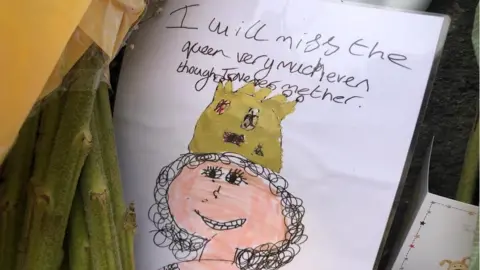 I will miss the
queen very much even
though I never met her.